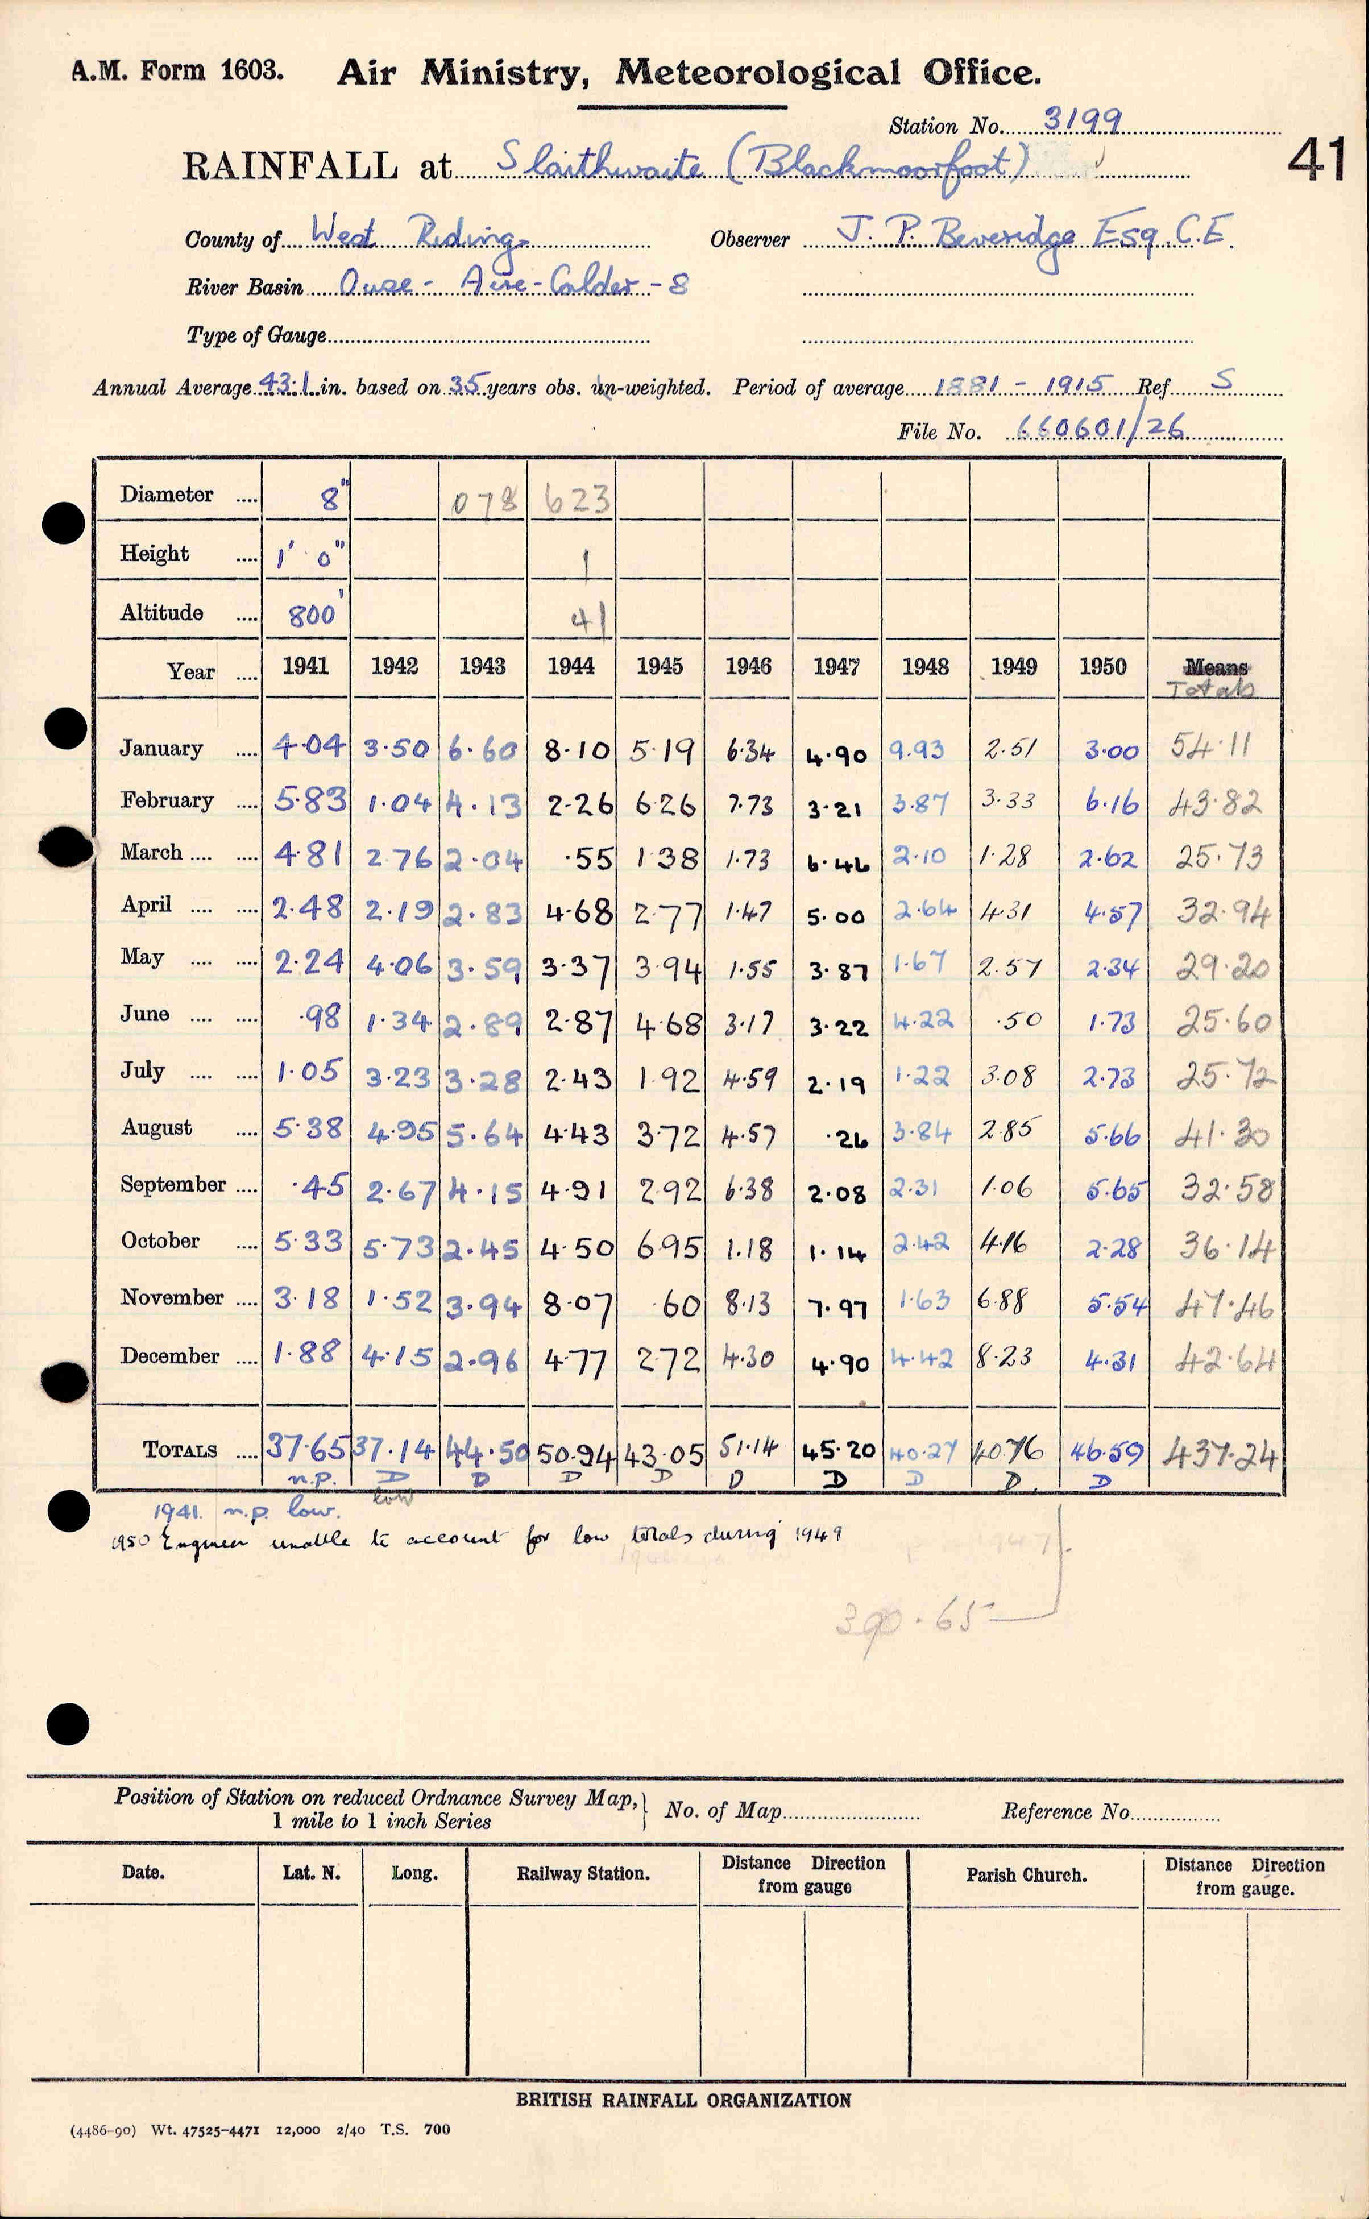 A.M. Form 1603. Air Ministry, Meteorological Office.
Station No. 3199
41
RAINFALL at Slaithwaite (Blackmoorfoot)
County of West Riding Observer J. P. Beveridge Esq. C.E.
River Basin Ouse - Aire - Calder - 8
Type of Gauge
Annual Average 43.1 in. based on 35 years obs. un-weighted. Period of average 1881 - 1915 Ref S
File No. 660601/26
Diameter .... 8" 078 623
Height .... 1' 0" 1
Altitude .... 800' 41
Year .... 1941 1942 1943 1944 1945 1946 1947 1948 1949 1950 Means
Totals
January .... 4.04 3.50 6.60 8.10 5.19 6.34 4.90 9.93 2.51 3.00 54.11
February .... 5.83 1.04 4.13 2.26 6.26 7.73 3.21 3.87 3.33 6.16 43.82
March .... .... 4.81 2.76 2.04 .55 1.38 1.73 6.46 2.10 1.28 2.62 25.73
April .... .... 2.48 2.19 2.83 4.68 2.77 1.47 5.00 2.64 4.31 4.57 32.94
May .... .... 2.24 4.06 3.59 3.37 3.94 1.55 3.87 1.67 2.57 2.34 29.20
June .... .... .98 1.34 2.89 2.87 4.68 3.17 3.22 4.22 .50 1.73 25.60
July .... .... 1.05 3.23 3.28 2.43 1.92 4.59 2.19 1.22 3.08 2.73 25.72
August .... 5.38 4.95 5.64 4.43 3.72 4.57 .26 3.84 2.85 5.66 41.30
September .... .45 2.67 4.15 4.91 2.92 6.38 2.08 2.31 1.06 5.65 32.58
October .... 5.33 5.73 2.45 4.50 6.95 1.18 1.14 2.42 4.16 2.28 36.14
November .... 3.18 1.52 3.94 8.07 .60 8.13 7.97 1.63 6.88 5.54 47.46
December .... 1.88 4.15 2.96 4.77 2.72 4.30 4.90 4.42 8.23 4.31 42.64
TOTALS .... 37.65 37.14 44.50 50.94 43.05 51.14 45.20 40.27 40.76 46.59 437.24
n.p. D D D D D D D D D
low
1941. n.p. low.
1950 Engineer unable to account for low totals during 1949
390.65
Position of Station on reduced Ordnance Survey Map, 1 mile to 1 inch Series } No. of Map Reference No.
Date. Lat. N. Long. Railway Station. Distance Direction from gauge Parish Church. Distance Direction from gauge.
BRITISH RAINFALL ORGANIZATION
(4486-90) Wt. 47525-4471 12,000 2/40 T.S. 700